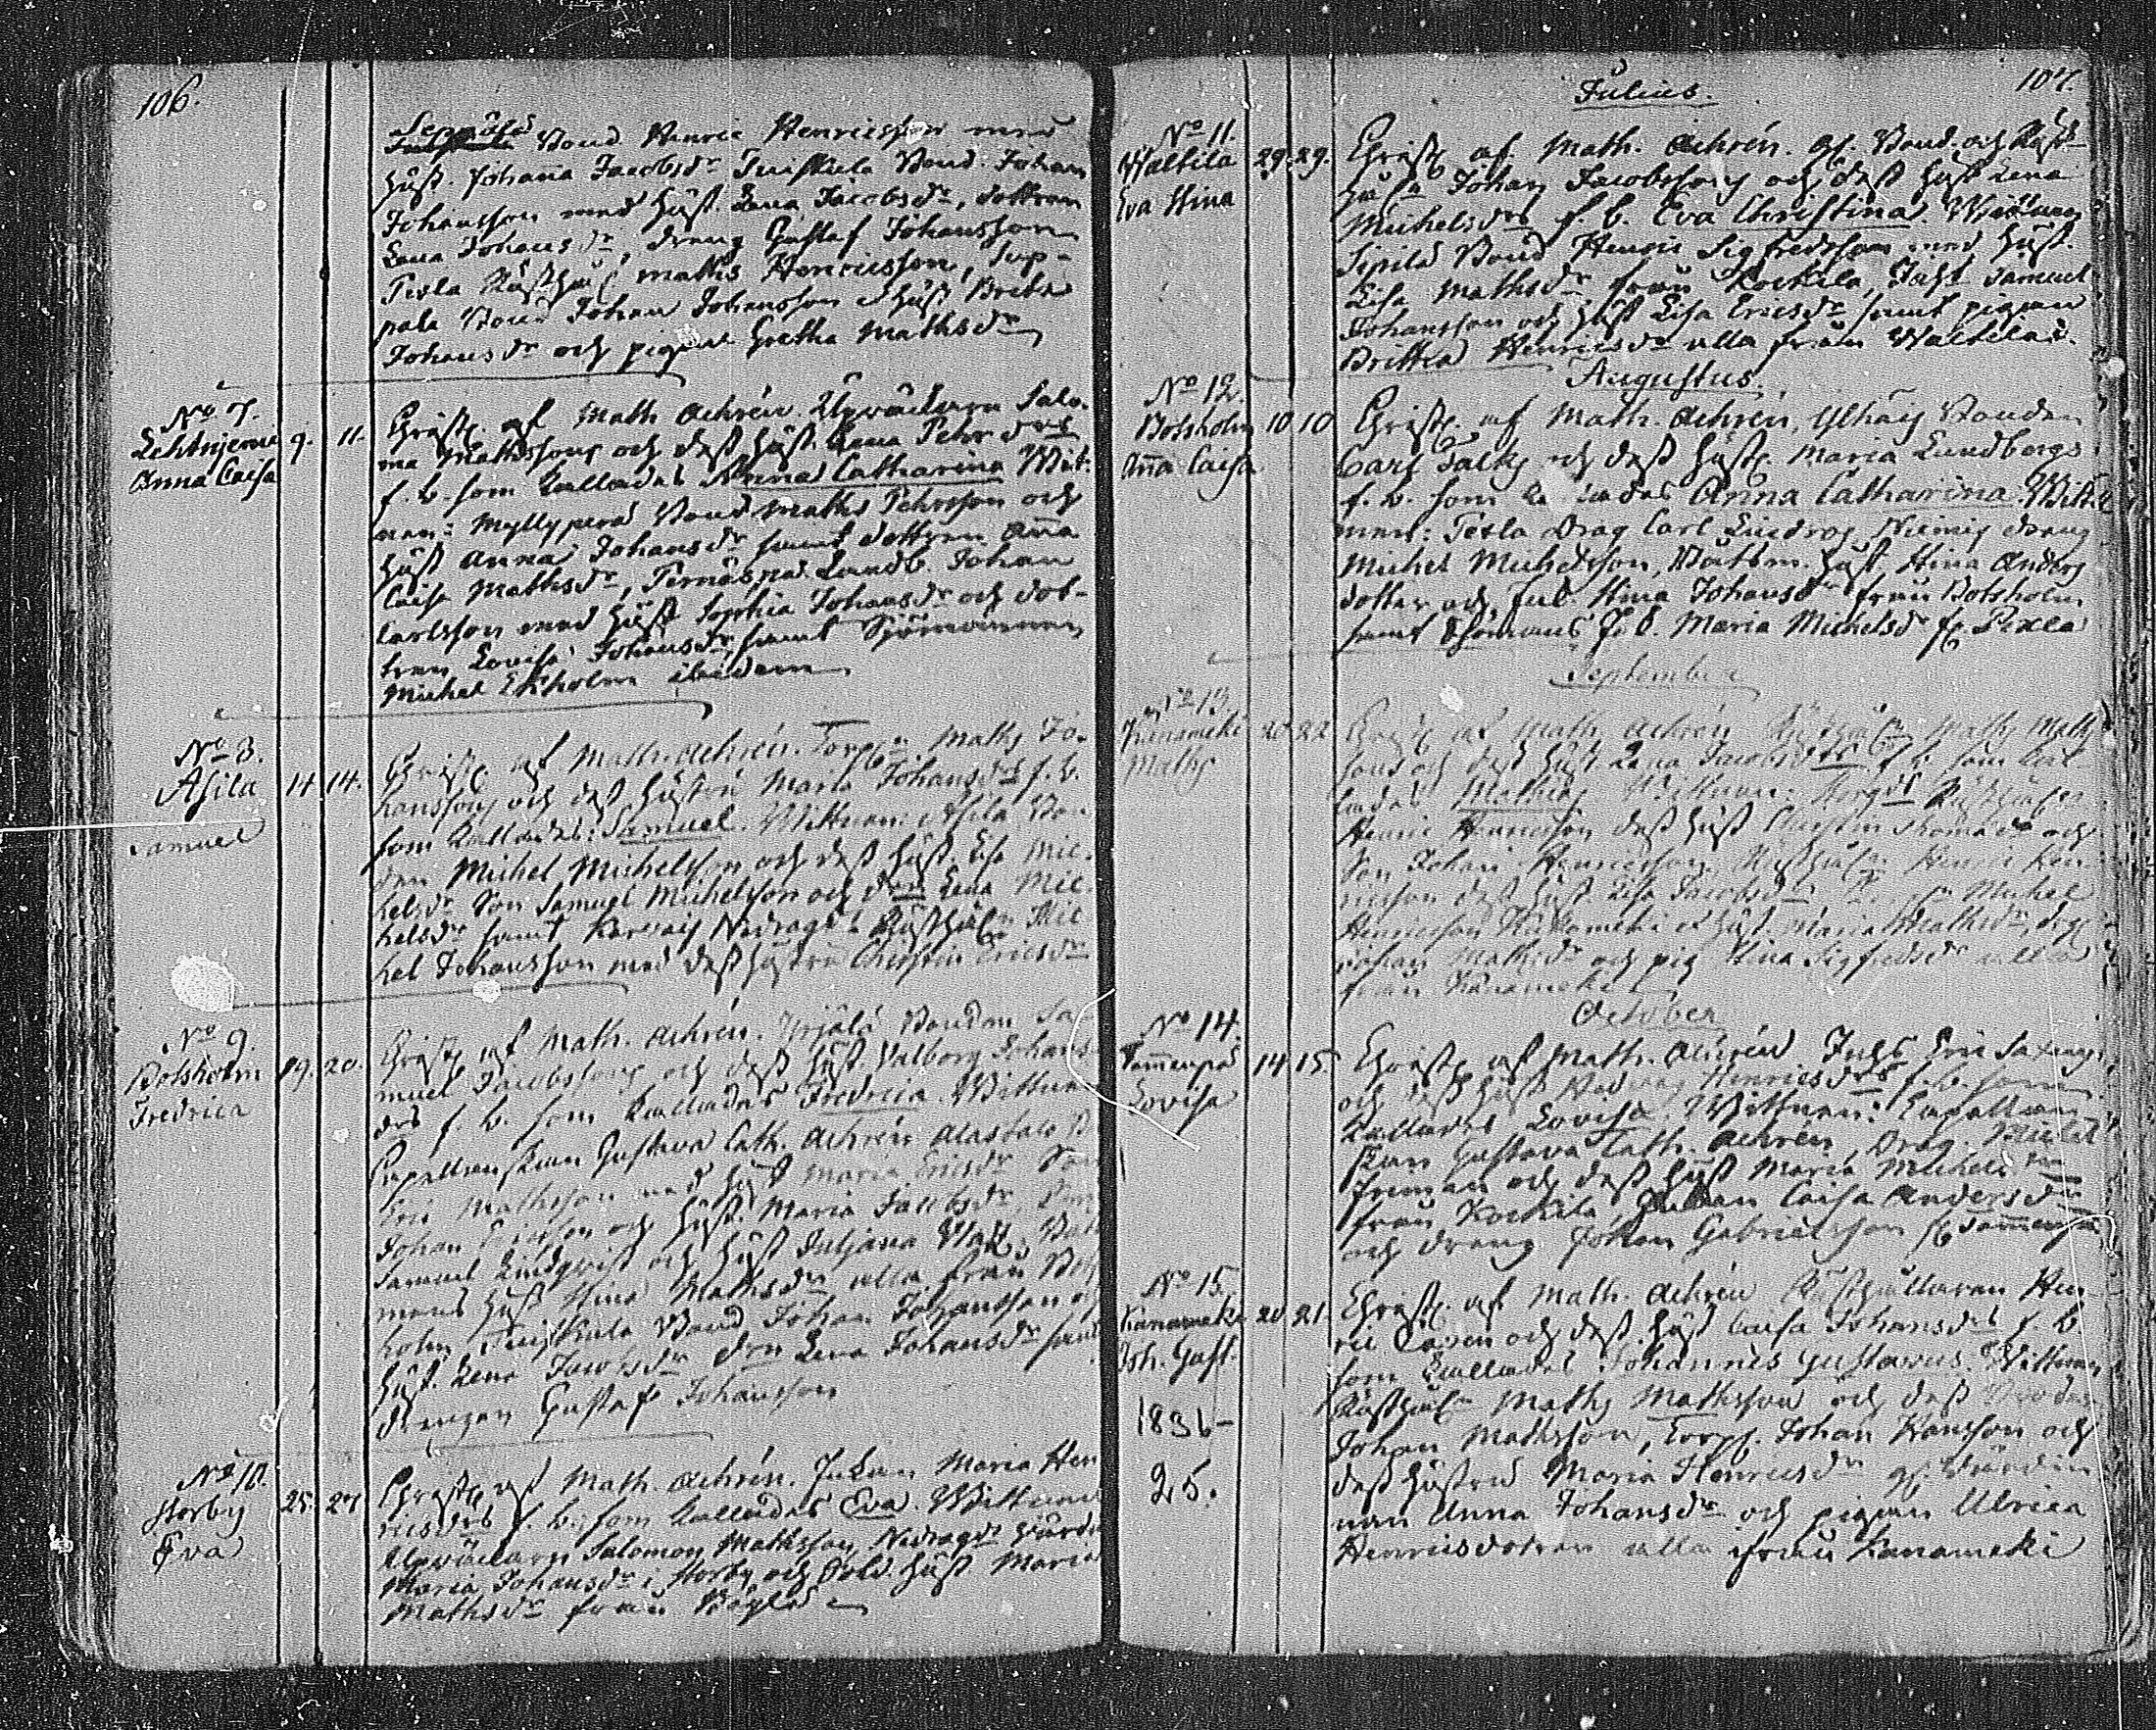 106.
Seppälä Bond. Henric Henricsson med
hust. Johanna Jacobsdr Tuiskula Bond. Johan
Johansson med hust. Lena Jacobsdr, dottren
Lena Johansdr, dreng Gustaf Johansson
Pexla Rusth. Maths Henricsson, Sup-
pala Bond Johan Johansson o hust Brita
Johansdr och pigan Gretha Mathsdr
No 7.
Lehtnjemi 9. 11.
Anna Caisa
Christ. af Math. Achrén. Upväckaren Salo-
mo Mathssons och dess hust. Lena Pehrsdrs
f. b. som kallades Anna Catharina Wit-
nen: Myllyperä Bond Maths Pehrsson och
hust Anna Johansdr samt dottren Anna
Caisa Mathsdr, Landb. Johan
Carlsson med hust Sophia Johansdr och dot-
tren Lovisa Johansdr samt
Michel Ekholm ibidem
No 8.
Asila 14 14.
Samuel
Christ. af Math. Achrén. Torp. Maths Jo-
hanssons och dess hustru Maria Johansdrs f. b.
som kallades: Samuel. Wittnen: Asila Bon-
den Michel Michelsson och dess hust. Lisa Mic-
helsdr Son Samuel Michelsson och drn Lena Mic-
helsdr samt Karvais Nedragd Rusthåln Mic-
hel Johansson med dess hustru Christin Ericsdr
No 9.
Botsholm 19. 20.
Fredrica
Christ. af Math. Achrén. Yrjälä Bonden Sa-
muel Jacobssons och dess hust. Valborg Johans-
drs f. b. som kallades Fredrica. Wittnen
Capellanskan Gustava Cath. Achrén Alastalo B
Eric Mathsson med hust Maria Ericsdr Son
Johan Ericsson och hust. Maria Jacobsdr,
Samuel Lindqvist och hust Juljana
mans hust Stina Mathsdr alla från Bots-
holm Tuiskula Bond Johan Johansson och
hust. Lena Jacobsdr drn Lena Johansdr samt
drengen Gustaf Johansson
No 10.
Storby 25. 27
Eva
Christ. af Math. Achrén. Maria Hen-
ricsdrs f. b. som kallades Eva. Wittnen
Upväckarn Salomon Mathsson, Nedragd
Maria Johansdr i Storby och Sold. hust Maria
Mathsdr från
107.
Julius.
No 11.
Waltila 29. 29.
Eva Stina
Christ. af Math. Achrén. Bond. och
Johan Jacobssons och dess hust Lena
Michelsdrs f. b. Eva Christina. Wittnen
Sipilä Bond Henric Sigfredsson med hust.
Lisa Mathsdr från Kockila, Samuel
Johansson och hust Lisa Ericsdr samt pigan
Britta Henricsdr alla från Waltila.
Augustus.
No 12.
Botsholm 10 10
Anna Caisa
Christ. af Math. Achrén, Bonden
Carl Falks och dess hust. Maria Lundbergs
f. b. som kallades Anna Catharina. Witt-
nen: Pexla Drag Carl Niemis dreng
Michel Michelsson, Båtsm. hust. Stina Anders
dotter och Stina Johansdr från Botsholm
samt Maria Michelsdr fr. Pexla
September
No 13.
Kanameki 20 22
Maths
Christ. af Math. Achrén Rusthåln Maths Maths-
sons och dess hust Lena Jacobsdrs f. b. som kal-
lades Mathias Wittnen: Rusthåln
Henric Henricsson dess hust Christin Thomasdr och
Son Johan Henricsson Rusthåln Henric Hen-
ricsson dess hust. Lisa Jacobsdr Michel
Henricsson Kanameki o hust. Maria Mathsdr,
Johan och pig Stina Sigfredsdr alla
från Kanameki
October
No 14.
Tammenpä 14 15.
Lovisa
Christ. af Math. Achrén Eric
och dess hust Henricsdrs f. b. som
kallades Lovisa. Wittnen: Capellan-
skan Gustava Cath. Achrén, Drag. Michel
Friman och dess hust Maria Michelsdr
från Kockila Caisa Andersdr
och dreng Johan Gabrielsson fr Tammenpä
No 15.
Kanameki 20 21.
Joh. Gust.
1836-
25.
Christ. af Math. Achrén Rusthållaren Hen-
ric och dess hust Caisa Johansdrs f. b
som kallades Johannes Gustavus. Wittnen
Rusthåln Maths Mathsson och dess
Johan Mathsson, Torp. Johan Hansson och
dess hustru Maria Henricsdr
nan Anna Johansdr och pigan Ulrica
Henricsdotter alla ifrån Kanameki